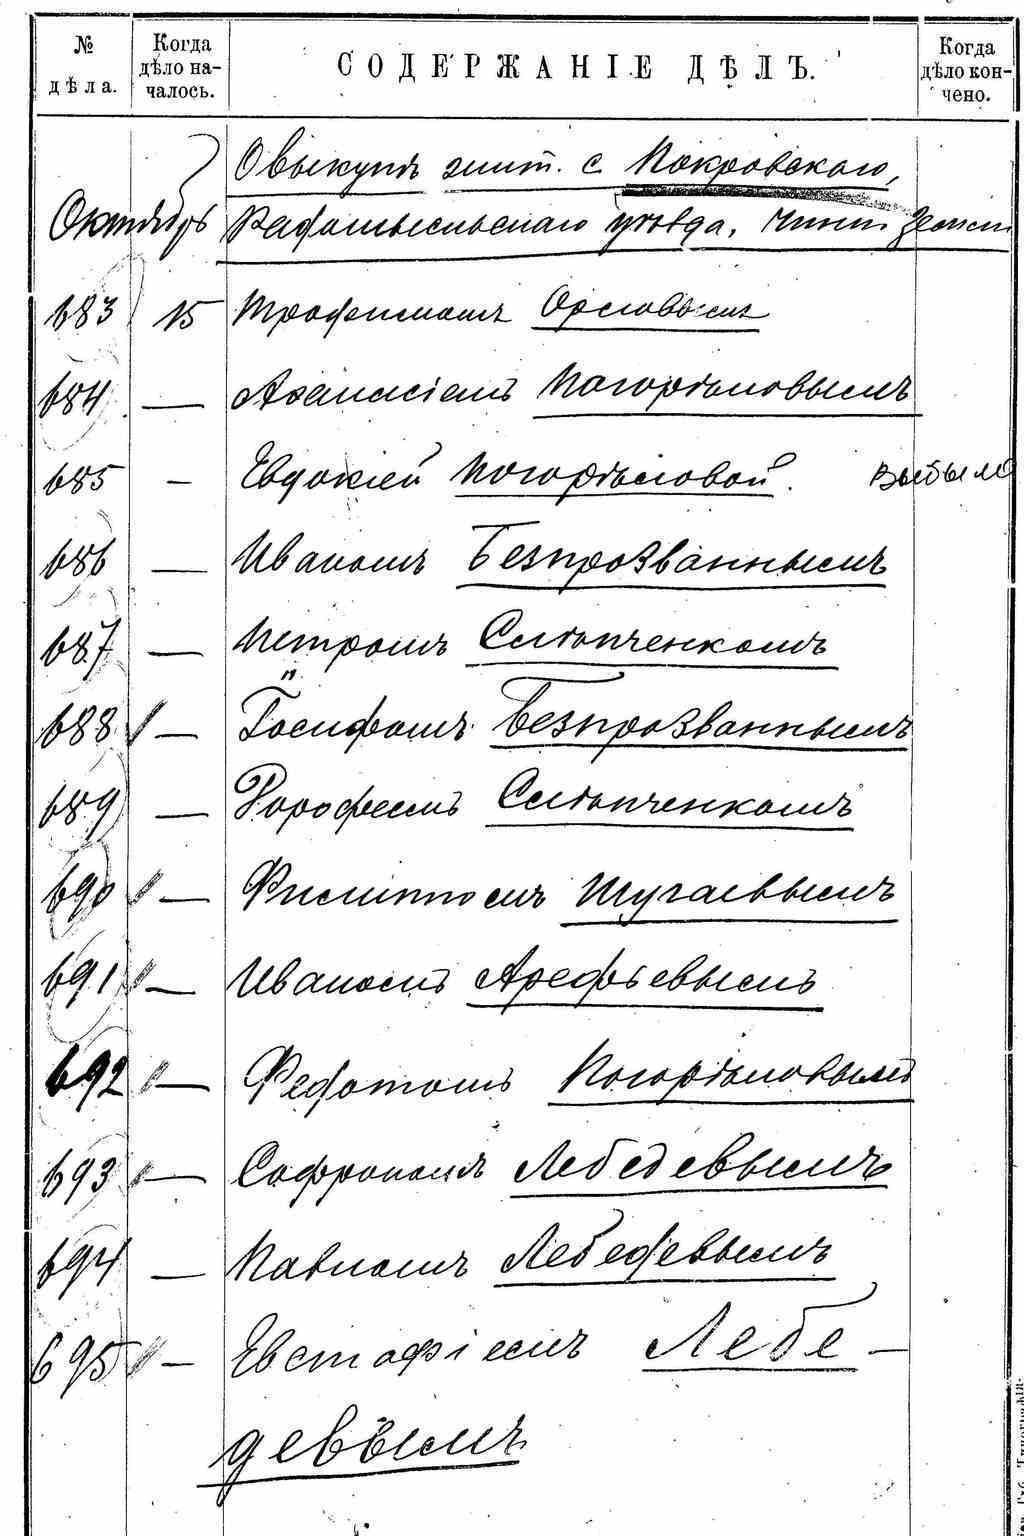 № дѣла.
Когда дѣло началось.
СОДЕРЖАНІЕ ДѢЛЪ.
Когда дѣло кончено.
О выкупѣ жит. с Покровскаго,
Октябрь Радомысльскаго уѣзда, Земл
683 15 Трофимомъ Орловымъ
684 — Аѳанасіемъ Погорѣловымъ
685 — Евдокіей Погорѣловой. Выбыло
686 — Иваномъ Безпрозваннымъ
687 — Петромъ Слѣпченкомъ
688 — Іосифомъ Безпрозваннымъ
689 — Дорофеемъ Слѣпченкомъ
690 — Филиппомъ Шугаевымъ
691 — Иваномъ Арефьевымъ
692 — Федотомъ Погорѣловымъ
693 — Софрономъ Лебедевымъ
694 — Павломъ Лебедевымъ
695 — Евстафіемъ Лебе-
девымъ